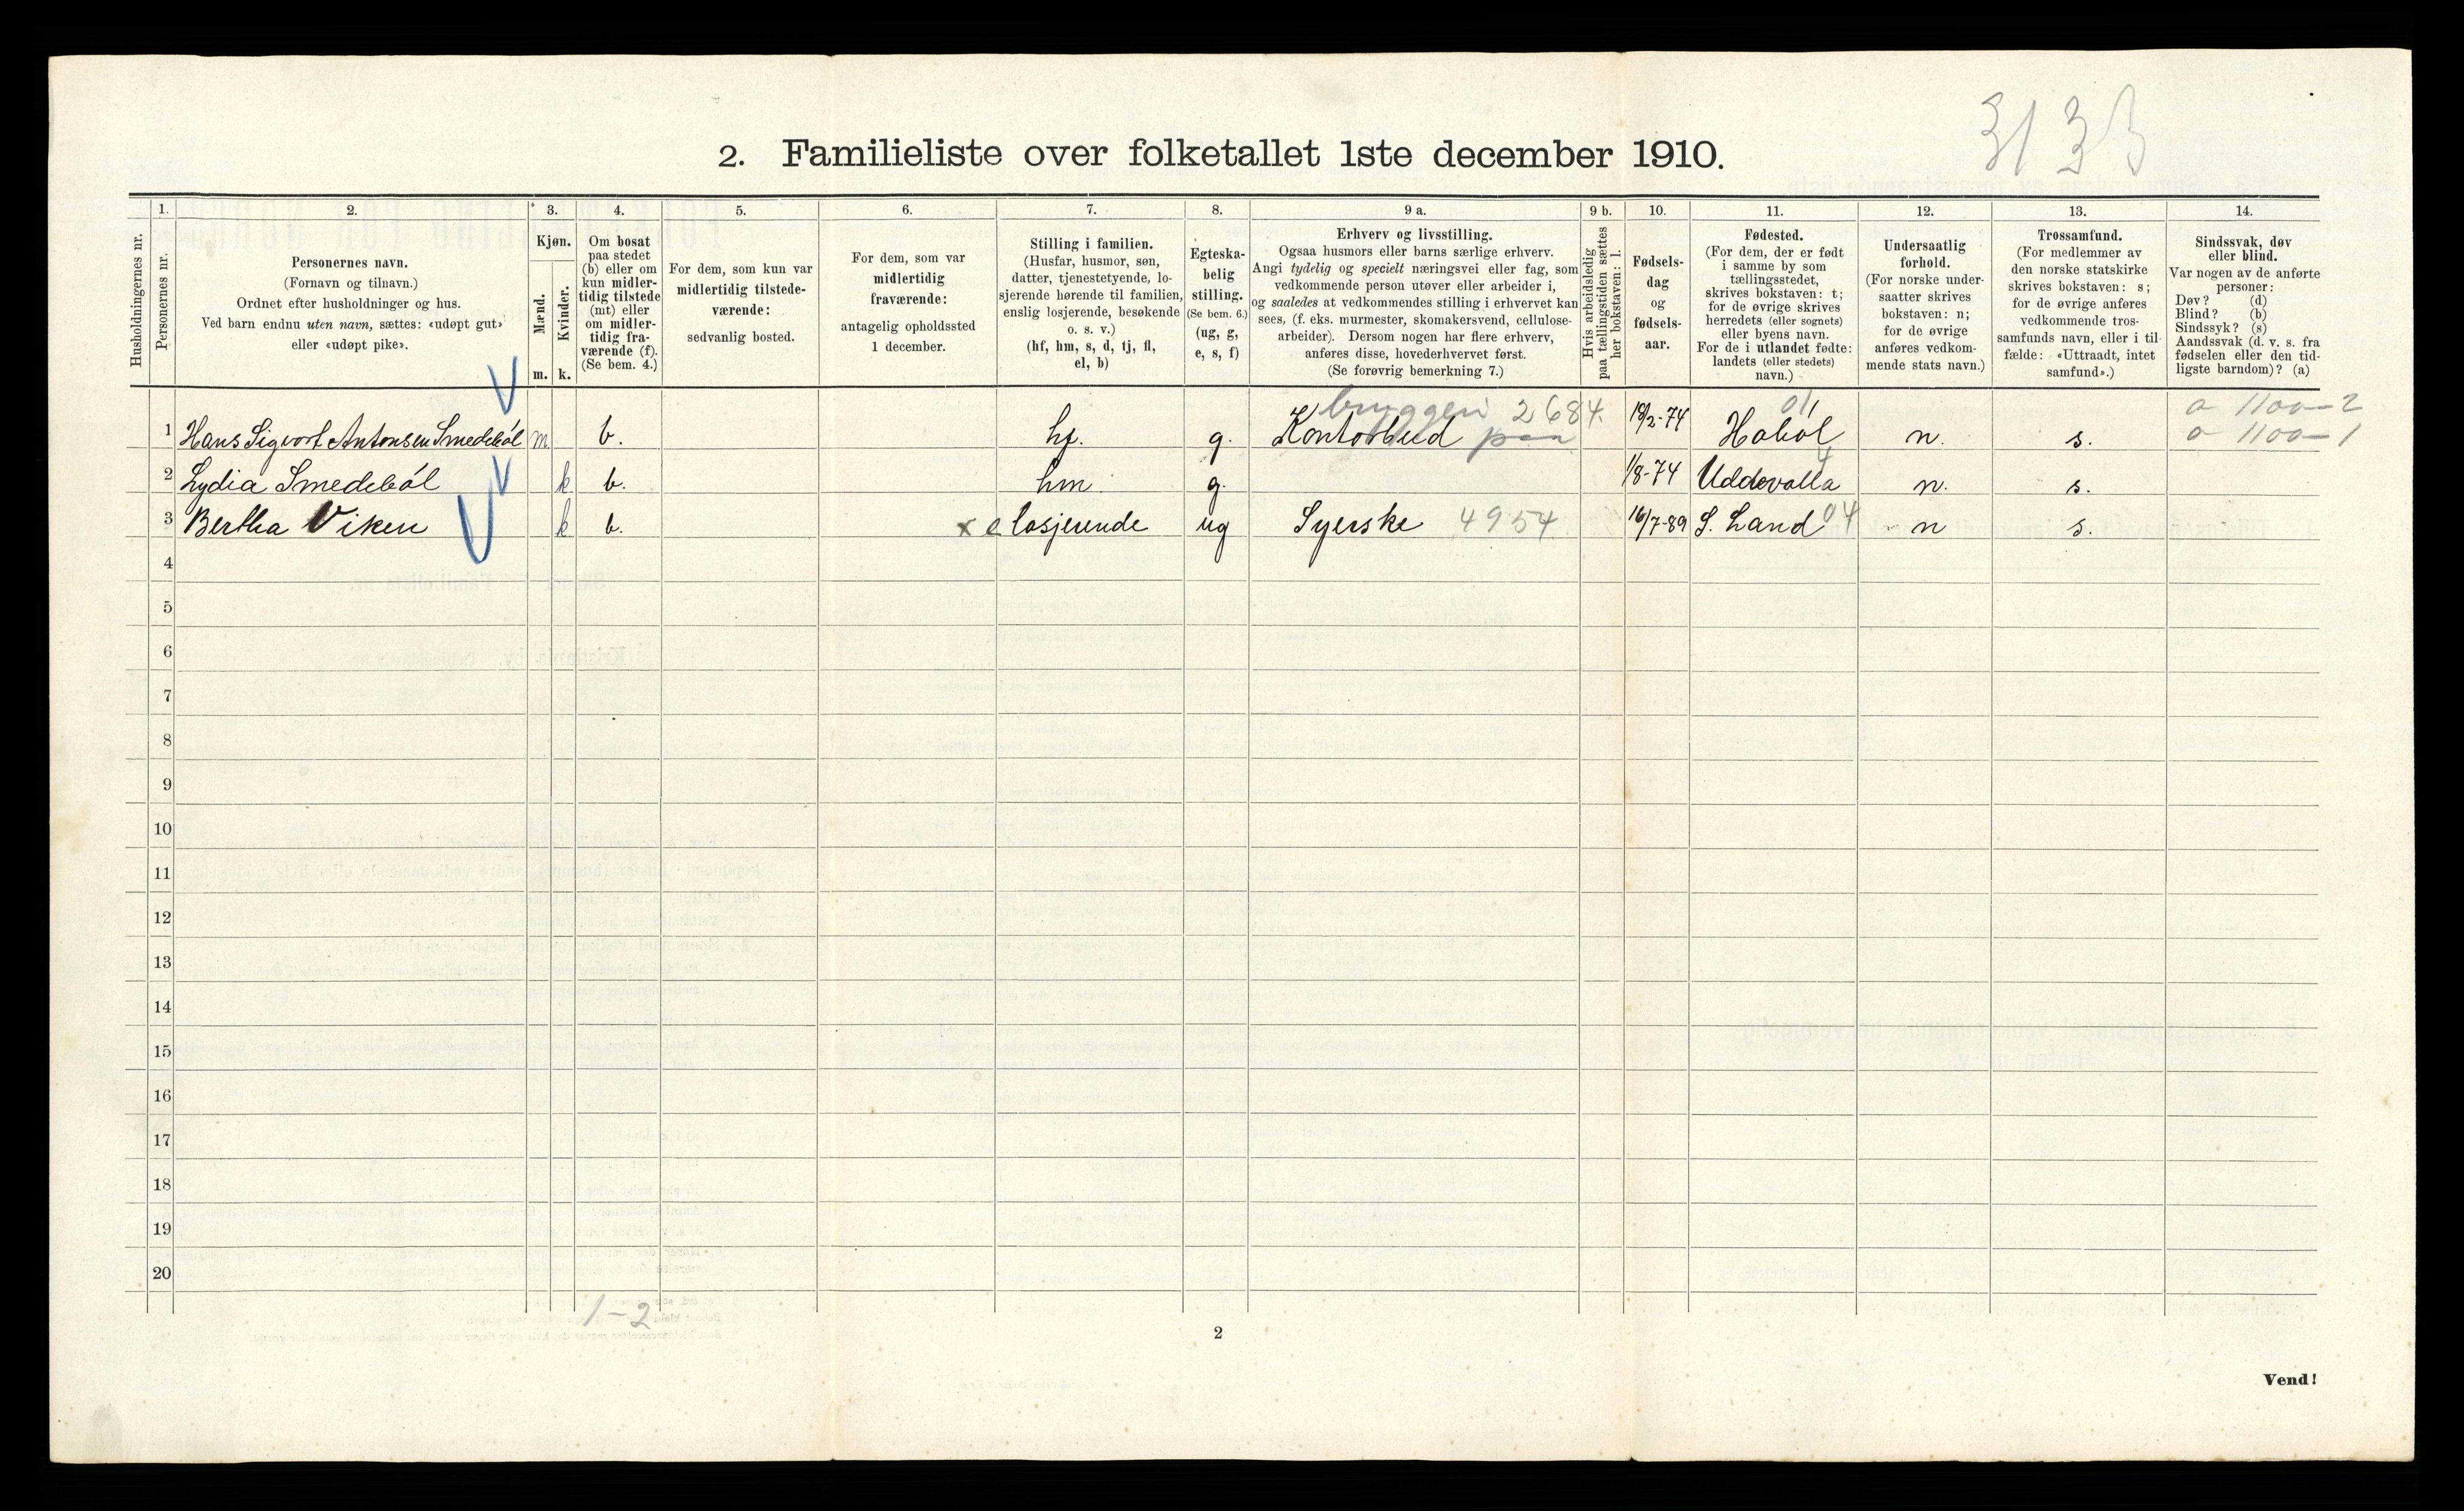 3133
2. Familieliste over folketallet 1ste december 1910.
1. 2. 3. 4. 5. 6. 7. 8. 9 a. 9 b. 10. 11. 12. 13. 14.
Husholdningernes nr.
Personernes nr.
Personernes navn.
(Fornavn og tilnavn.)
Ordnet efter husholdninger og hus.
Ved barn endnu uten navn, sættes: «udøpt gut»
eller «udøpt pike».
Kjøn.
Mænd.
Kvinder.
m. k.
Om bosat
paa stedet
(b) eller om
kun midler-
tidig tilstede
(mt) eller
om midler-
tidig fra-
værende (f).
(Se bem. 4.)
For dem, som kun var
midlertidig tilstede-
værende:
sedvanlig bosted.
For dem, som var
midlertidig
fraværende:
antagelig opholdssted
1 december.
Stilling i familien.
(Husfar, husmor, søn,
datter, tjenestetyende, lo-
sjerende hørende til familien,
enslig losjerende, besøkende
o. s. v.)
(hf, hm, s, d, tj, fl,
el, b)
Egteska-
belig
stilling.
(Se bem. 6.)
(ug, g,
e, s, f)
Erhverv og livsstilling.
Ogsaa husmors eller barns særlige erhverv.
Angi tydelig og specielt næringsvei eller fag, som
vedkommende person utøver eller arbeider i,
og saaledes at vedkommendes stilling i erhvervet kan
sees, (f. eks. murmester, skomakersvend, cellulose-
arbeider). Dersom nogen har flere erhverv,
anføres disse, hovederhvervet først.
(Se forøvrig bemerkning 7.)
Hvis arbeidsledig
paa tællingstiden sættes
her bokstaven: l.
Fødsels-
dag
og
fødsels-
aar.
Fødested.
(For dem, der er født
i samme by som
tællingsstedet,
skrives bokstaven: t;
for de øvrige skrives
herredets (eller sognets)
eller byens navn.
For de i utlandet fødte:
landets (eller stedets)
navn.)
Undersaatlig
forhold.
(For norske under-
saatter skrives
bokstaven: n;
for de øvrige
anføres vedkom-
mende stats navn.)
Trossamfund.
(For medlemmer av
den norske statskirke
skrives bokstaven: s;
for de øvrige anføres
vedkommende tros-
samfunds navn, eller i til-
fælde: «Uttraadt, intet
samfund».)
Sindssvak, døv
eller blind.
Var nogen av de anførte
personer:
Døv? (d)
Blind? (b)
Sindssyk? (s)
Aandssvak (d. v. s. fra
fødselen eller den tid-
ligste barndom)? (a)
bryggeri 2684. 01 a 1100-2
1 Hans Sigvart Antonsen Smedebøl m b. hf. g. Kontorbud paa 18/2-74 Hobøl n. s. a 1100-1
4
2 Lydia Smedebøl k b. hm g. 1/8-74 Uddevalla n. s.
3 Bertha Viken k b. x e losjerende ug Syerske 4954 16/7-89 S. Land 04 n s.
4
5
6
7
8
9
10
11
12
13
14
15
16
17
18
19
20
1-2
2
Vend!